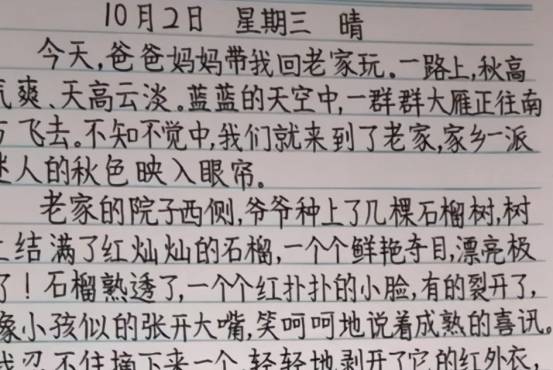 10月2日 星期三 晴
今天,爸爸妈妈带我回老家玩。一路上,秋高
气爽、天高云淡。蓝蓝的天空中,一群群大雁正往南
方飞去。不知不觉中,我们就来到了老家,家乡一派
迷人的秋色映入眼帘。
老家的院子西侧,爷爷种上了几棵石榴树,树
上结满了红灿灿的石榴,一个个鲜艳夺目,漂亮极
了!石榴熟透了,一个个红扑扑的小脸,有的裂开了,
像小孩似的张开大嘴,笑呵呵地说着成熟的喜讯。
我忍不住摘下来一个,轻轻地剥开了它的红外衣,